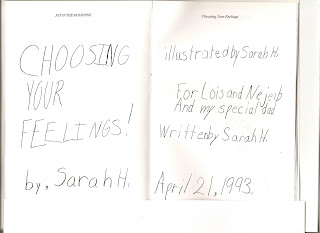 JOY IN THE MOURNING
CHOOSING
YOUR
FEELINGS!
by, Sarah H.
Choosing Your Feelings
illustrated by Sarah H.
For Lois and Nejeib
And my special dad
Written by Sarah H.
April 21, 1993.